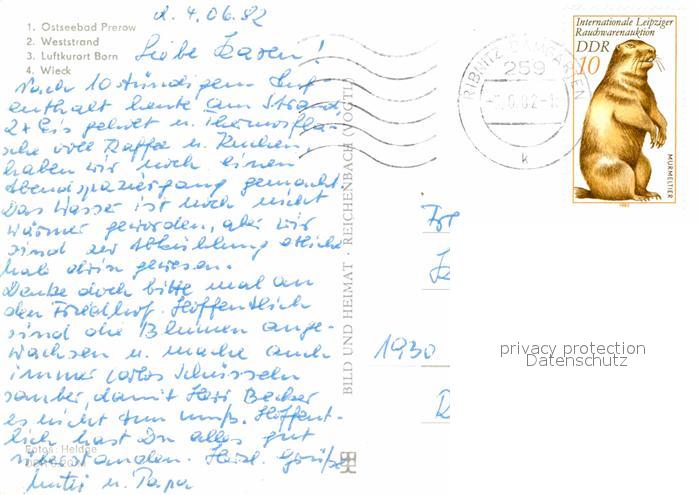 d. 4.06.82
1. Ostseebad Prerow
2. Weststrand
3. Luftkurort Born
4. Wieck
Liebe Karen!
Nach 10 stündigem Auf
enthalt heute am Strand,
2x Eis geholt u. Thermosfla-
sche voll Kaffee u. Kuchen,
haben wir noch einen
Abendspaziergang gemacht.
Das Wasser ist noch nicht
wärmer geworden, aber wir
sind zur Abkühlung etliche
male drin gewesen.
Denke doch bitte mal an
den Friedhof. Hoffentlich
sind die Blumen ange-
wachsen u. mache auch
immer Schüsseln
sauber, damit Becker
es nicht tun muß. Hoffent-
lich hast Du alles gut
überstanden. Herzl. Grüße
Mutti u. Papa
Fotos: Heldge
BILD UND HEIMAT · REICHENBACH (VOGTL)
RIBNITZ-DAMGARTEN
259
k
Internationale Leipziger
Rauchwarenauktion
DDR
10
MURMELTIER
1982
1930
privacy protection
Datenschutz